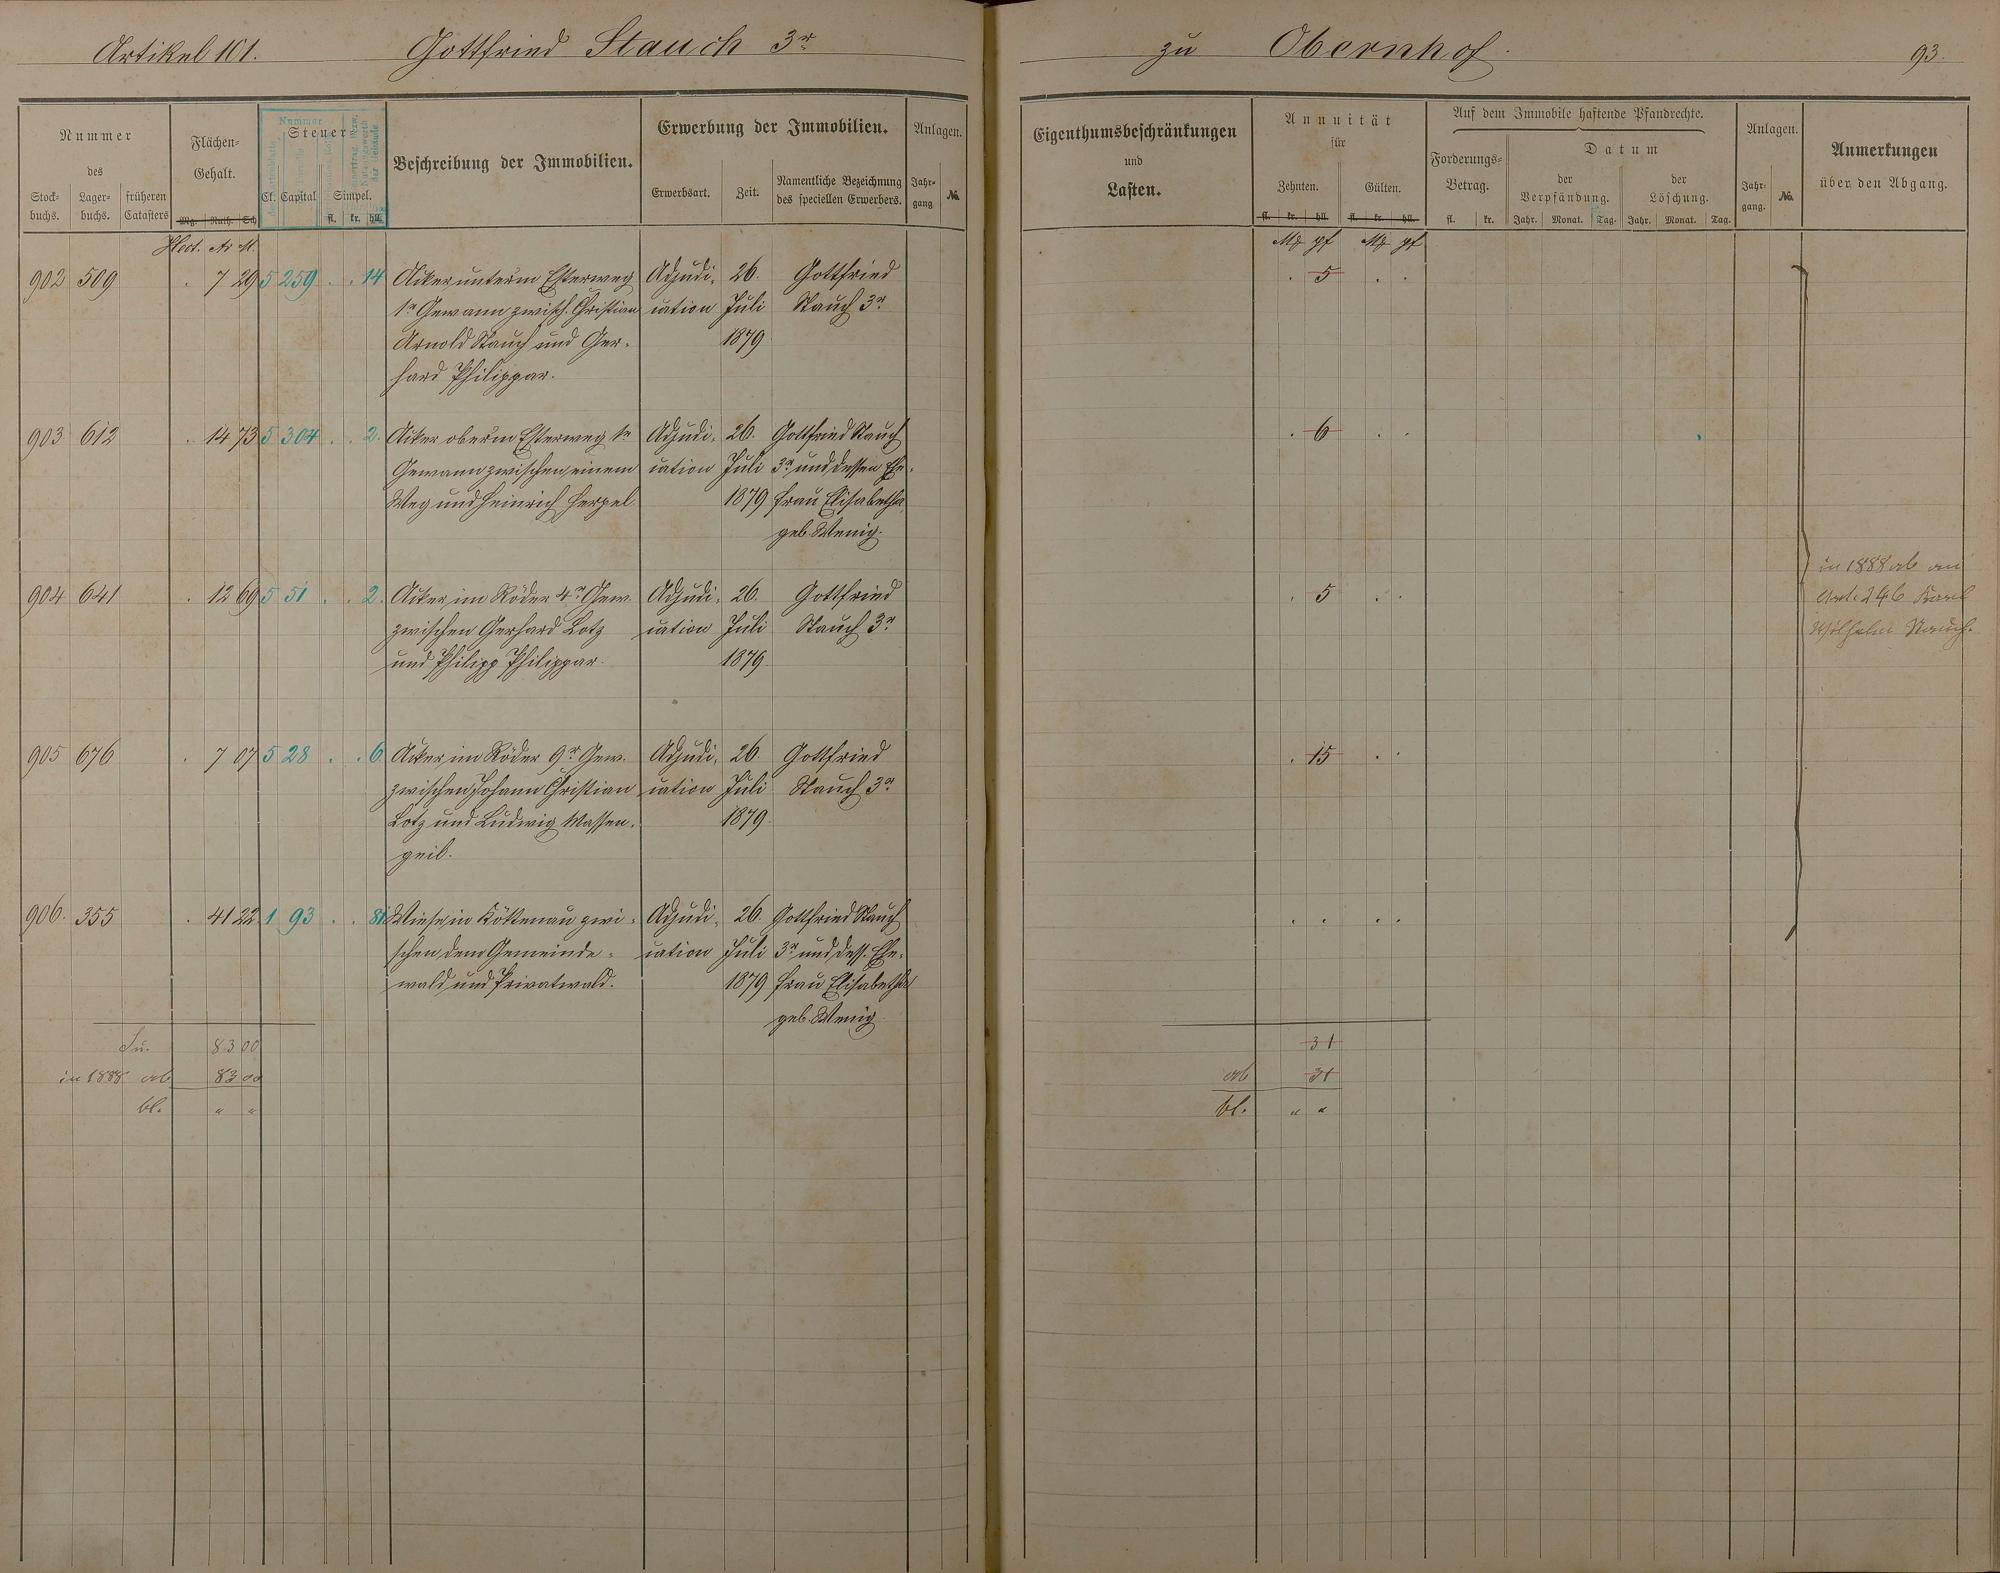 Artikel 101. Gottfried Stauch 3r zu Obernhof. 93.
Nummer des
Stockbuchs. Lagerbuchs. früheren Catasters
Flächen-Gehalt.
Mg. Ruth. Sch
Hect. Ar M.
Steuer
Nummer
Cl. Capital Simpel.
fl. kr. hll.
Beschreibung der Immobilien.
Erwerbung der Immobilien.
Erwerbsart. Zeit. Namentliche Bezeichnung des speciellen Erwerbers.
Anlagen.
Jahrgang №.
Eigenthumsbeschränkungen
und
Lasten.
Annuität
für
Zehnten. Gülten.
fl. kr. hll. fl. kr. hll.
Mk pf Mk pf
Auf dem Immobile haftende Pfandrechte.
Forderungs-Betrag.
fl. kr.
Datum
der Verpfändung. der Löschung.
Jahr. Monat. Tag. Jahr. Monat. Tag.
Anlagen.
Jahrgang. №.
Anmerkungen
über den Abgang.
902 509 . 7 29 5 259 . . 14 Acker unterm Esterweg Adjudi- 26. Gottfried . 5 . .
1r Gewann zwisch. Christian cation Juli Stauch 3r
Arnold Stauch und Ger- 1879
hard Philippar.
903 612 . 14 73 5 304 . . 2. Acker oberm Esterweg 1r Adjudi- 26. Gottfried Stauch . 6 . .
Gewann zwischen einem cation Juli 3r und dessen Ehe-
Weg und Heinrich Herpel 1879 frau Elisabetha,
geb. Wenig.
in 1888 ab an
904 641 . 12 69 5 51 . . 2. Acker im Röder 4r Gew. Adjudi- 26. Gottfried . 5 . . Art. 246 Karl
zwischen Gerhard Lotz cation Juli Stauch 3r Wilhelm Stauch.
und Philipp Philippar. 1879
905 676 . 7 07 5 28 . . 6. Acker im Röder 9r Gew. Adjudi- 26. Gottfried . 15 . .
zwischen Johann Christian cation Juli Stauch 3r
Lotz und Ludwig Massen- 1879
geil.
906. 355 . 41 22 1 93 . . 81 Wiese in Köttenau zwi- Adjudi- 26. Gottfried Stauch . . . .
schen dem Gemeinde- cation Juli 3r und dess. Ehe-
wald und Privatwald. 1879 frau Elisabetha
geb. Wenig.
Su. 83 00 31
in 1888 ab 83 00 ab 31
bl. " " bl. " "